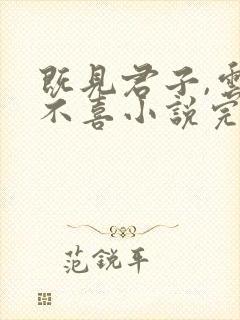 既見君子,雲
不喜小說完
范銳平